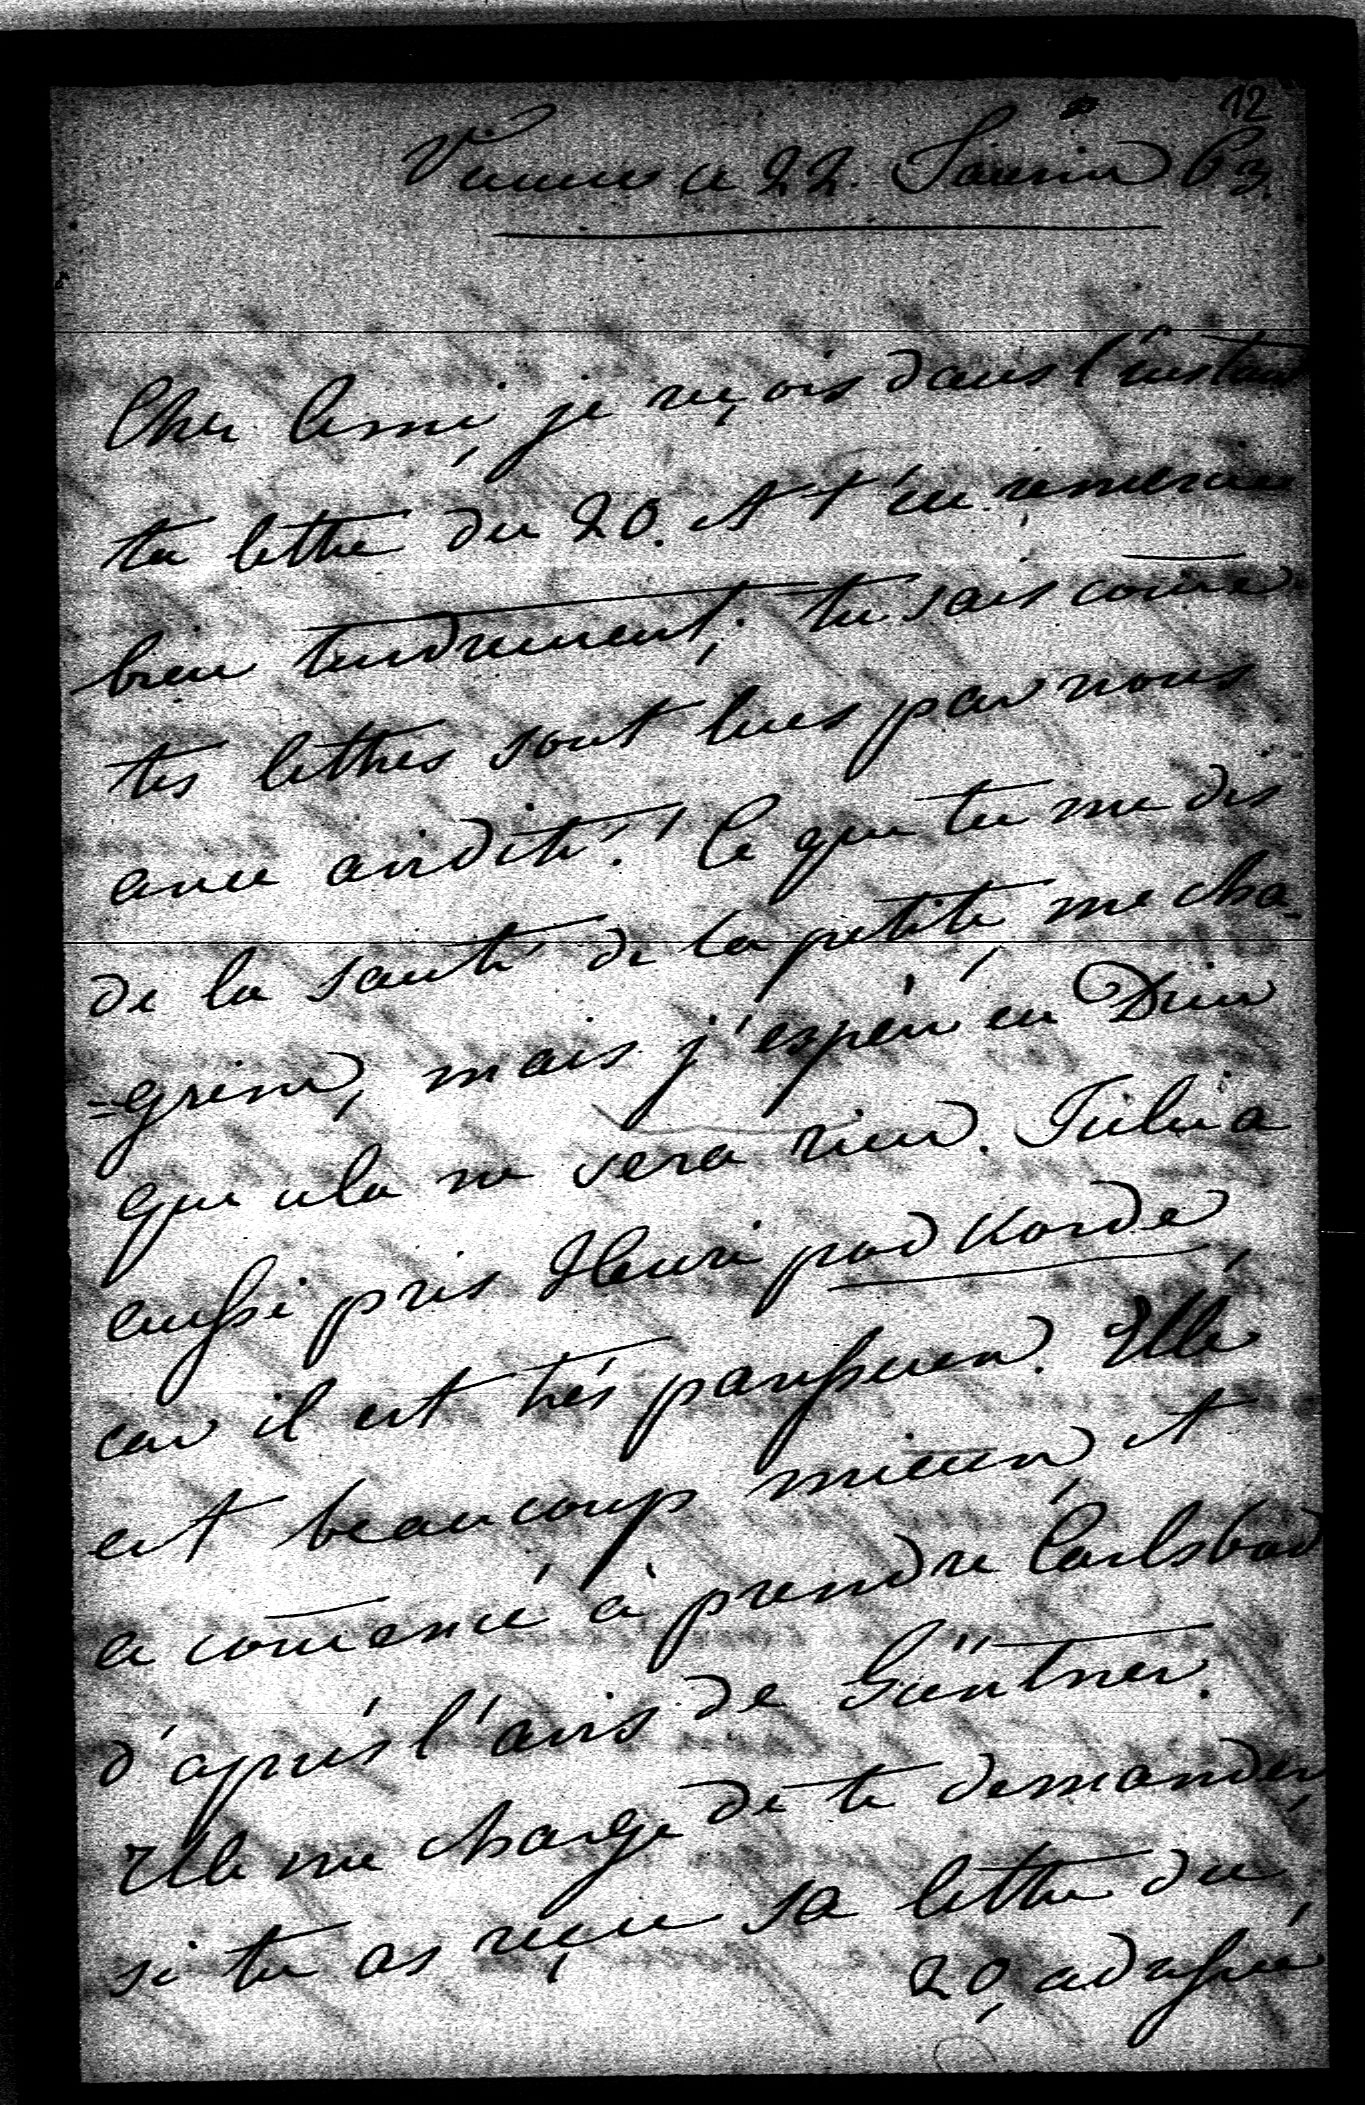 12
Vienne ce 22 Janvier 63.
Cher Ami, je reçois dans l'instant
ta lettre du 20. et t'en remercie
bien tendrement; tu sais com̅e
tes lettres sont lues par nous
avec avidité! Ce que tu me dis
de la santé de la petite, me cha-
=grine, mais j'espére en Dieu
que cela ne sera rien. Julie a
aussi pris Henri pod Korde,
car il est trés paresseux. Elle
est beaucoup mieux, et
a com̅encé à prendre Carlsbad
d'aprés l'avis de Güntner.
Elle me charge de te demander,
si tu as reçu sa lettre du,
20, adressée